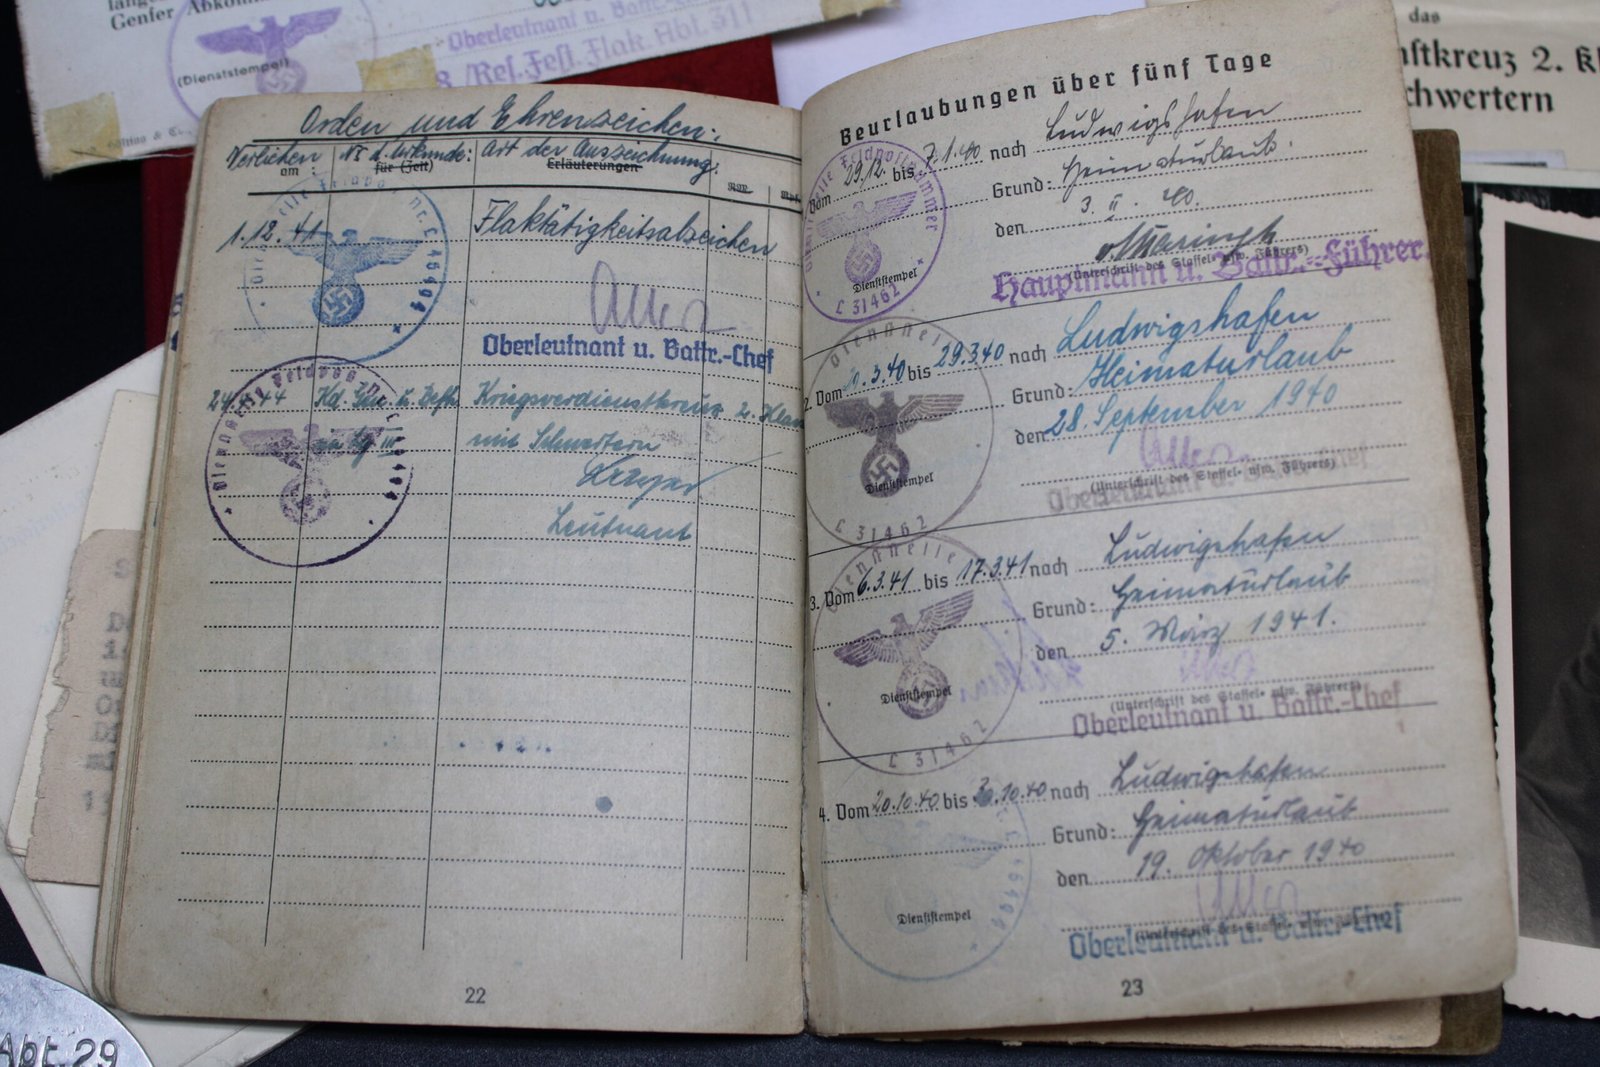 Genfer Abkom
(Dienststempel)
Oberleutnant u. Battr.
/Res. Fest. Flak. Abt. 311
das
stkreuz 2. Kl
chwertern
Orden und Ehrenzeichen:
Verliehen am: Nr. d. Urkunde: für (Zeit) Art der Auszeichnung: Erläuterungen
1.12.41 Flaktätigkeitsabzeichen
L 46404
Oberleutnant u. Battr.-Chef
Kriegsverdienstkreuz 2. Klas
mit Schwertern
Leutnant
22
Beurlaubungen über fünf Tage
Vom 29.12. bis 7.1.40 nach Ludwigshafen
Grund: Heimaturlaub.
den 3. II. 40.
(Unterschrift des Staffel- usw. Führers)
Dienststempel
L 31462
Hauptmann u. Battr.-Führer
2. Vom 20.3.40 bis 29.3.40 nach Ludwigshafen
Grund: Heimaturlaub
den 28. September 1940
Dienststempel
(Unterschrift des Staffel- usw. Führers)
Oberleutnant u. Battr.-Chef
L 31462
3. Vom 6.3.41 bis 17.3.41 nach Ludwigshafen
Grund: Heimaturlaub
den 5. März 1941.
Dienststempel
(Unterschrift des Staffel- usw. Führers)
Oberleutnant u. Battr.-Chef
L 31462
4. Vom 20.10.40 bis 30.10.40 nach Ludwigshafen
Grund: Heimaturlaub
den 19. Oktober 1940
Dienststempel
Oberleutnant u. Battr.-Chef
23
Abt. 29